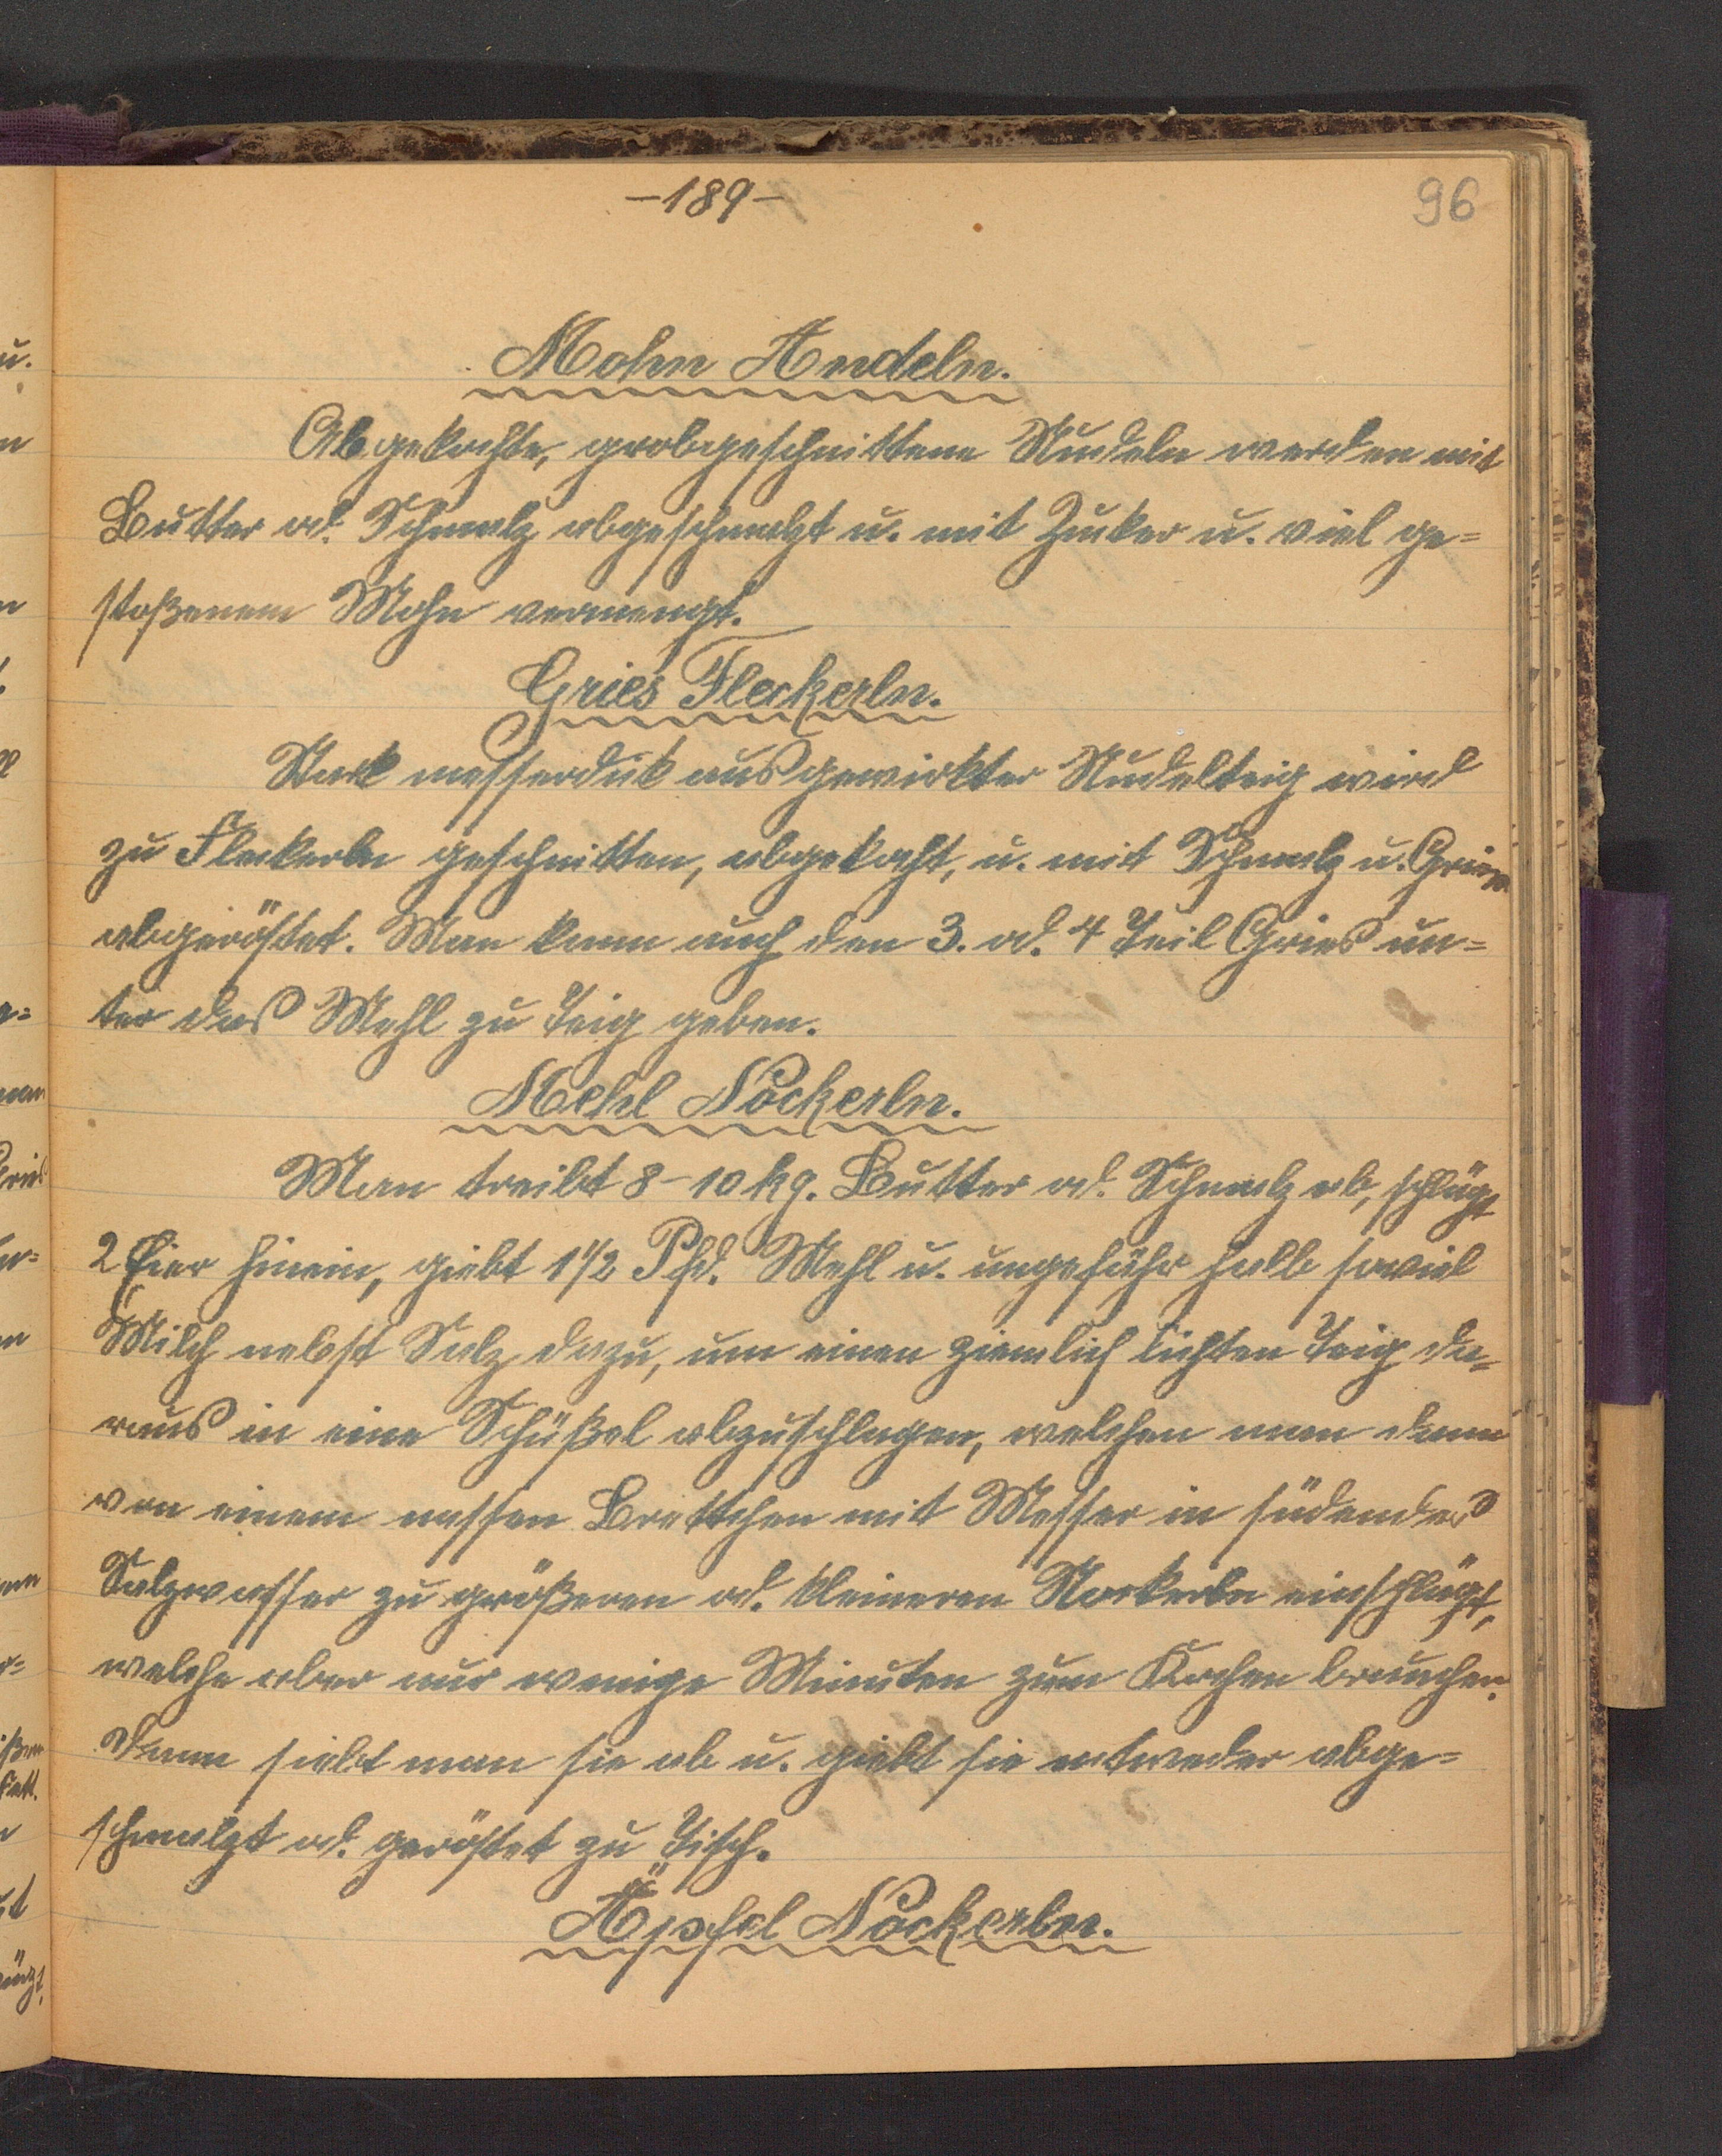 -189-
96
Mohn Nudeln.
Abgekochte, grobgeschnittene Nudeln werden mit
Butter od. Schmalz abgeschmalzt u. mit Zucker u. viel ge=
stoßenem Mohn vermengt.
Gries Fleckerln.
Stark messerdick ausgewirkter Nudelteig wird
zu Fleckerln geschnitten, abgekocht, u. mit Schmalz u. Gries
abgeröstet. Man kann auch den 3. od. 4 Teil Gries un=
ter das Mehl zu Teig geben.
Mehl Nockerln.
Man treibt 8-10 kg. Butter od. Schmalz ab, schlägt
2 Eier hinein, giebt 1 1/2 Pfd. Mehl u. ungefähr halb soviel
Milch nebst Salz dazu, um einen ziemlich lichten Teig da=
raus in eine Schüßel abzuschlagen, welchen man dann
von einem nassen Brettchen mit Messer in südendes
Salzwasser zu größeren od. kleineren Nockerln einschlägt,
welche aber nur wenige Minuten zum Kochen brauchen.
Dann siebt man sie ab u. giebt sie entweder abge=
schmalzt od. geröstet zu Tisch.
Äpfel Nockerln.